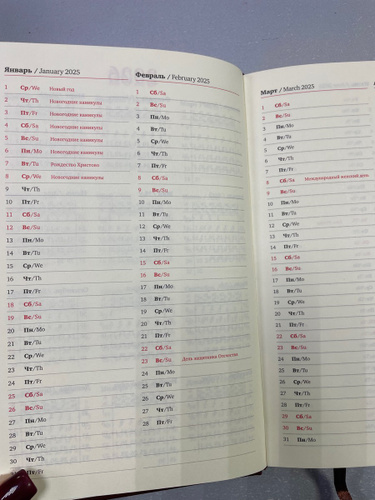 Январь / January 2025
1 Ср/We Новый год
2 Чт/Th Новогодние каникулы
3 Пт/Fr Новогодние каникулы
4 Сб/Sa Новогодние каникулы
5 Вс/Su Новогодние каникулы
6 Пн/Mo Новогодние каникулы
7 Вт/Tu Рождество Христово
8 Ср/We Новогодние каникулы
9 Чт/Th
10 Пт/Fr
11 Сб/Sa
12 Вс/Su
13 Пн/Mo
14 Вт/Tu
15 Ср/We
16 Чт/Th
17 Пт/Fr
18 Сб/Sa
19 Вс/Su
20 Пн/Mo
21 Вт/Tu
22 Ср/We
23 Чт/Th
24 Пт/Fr
25 Сб/Sa
26 Вс/Su
27 Пн/Mo
28 Вт/Tu
29 Ср/We
30 Чт/Th
Пт/Fr
Февраль / February 2025
1 Сб/Sa
2 Вс/Su
3 Пн/Mo
4 Вт/Tu
5 Ср/We
6 Чт/Th
7 Пт/Fr
8 Сб/Sa
9 Вс/Su
10 Пн/Mo
11 Вт/Tu
12 Ср/We
13 Чт/Th
14 Пт/Fr
15 Сб/Sa
16 Вс/Su
17 Пн/Mo
18 Вт/Tu
19 Ср/We
20 Чт/Th
21 Пт/Fr
22 Сб/Sa
23 Вс/Su День защитника Отечества
24 Пн/Mo
25 Вт/Tu
26 Ср/We
27 Чт/Th
28 Пт/Fr
Март / March 2025
1 Сб/Sa
2 Вс/Su
3 Пн/Mo
4 Вт/Tu
5 Ср/We
6 Чт/Th
7 Пт/Fr
8 Сб/Sa Международный женский день
9 Вс/Su
10 Пн/Mo
11 Вт/Tu
12 Ср/We
13 Чт/Th
14 Пт/Fr
15 Сб/Sa
16 Вс/Su
17 Пн/Mo
18 Вт/Tu
19 Ср/We
20 Чт/Th
21 Пт/Fr
22 Сб/Sa
23 Вс/Su
24 Пн/Mo
25 Вт/Tu
26 Ср/We
27 Чт/Th
28 Пт/Fr
29 Сб/Sa
30 Вс/Su
31 Пн/Mo